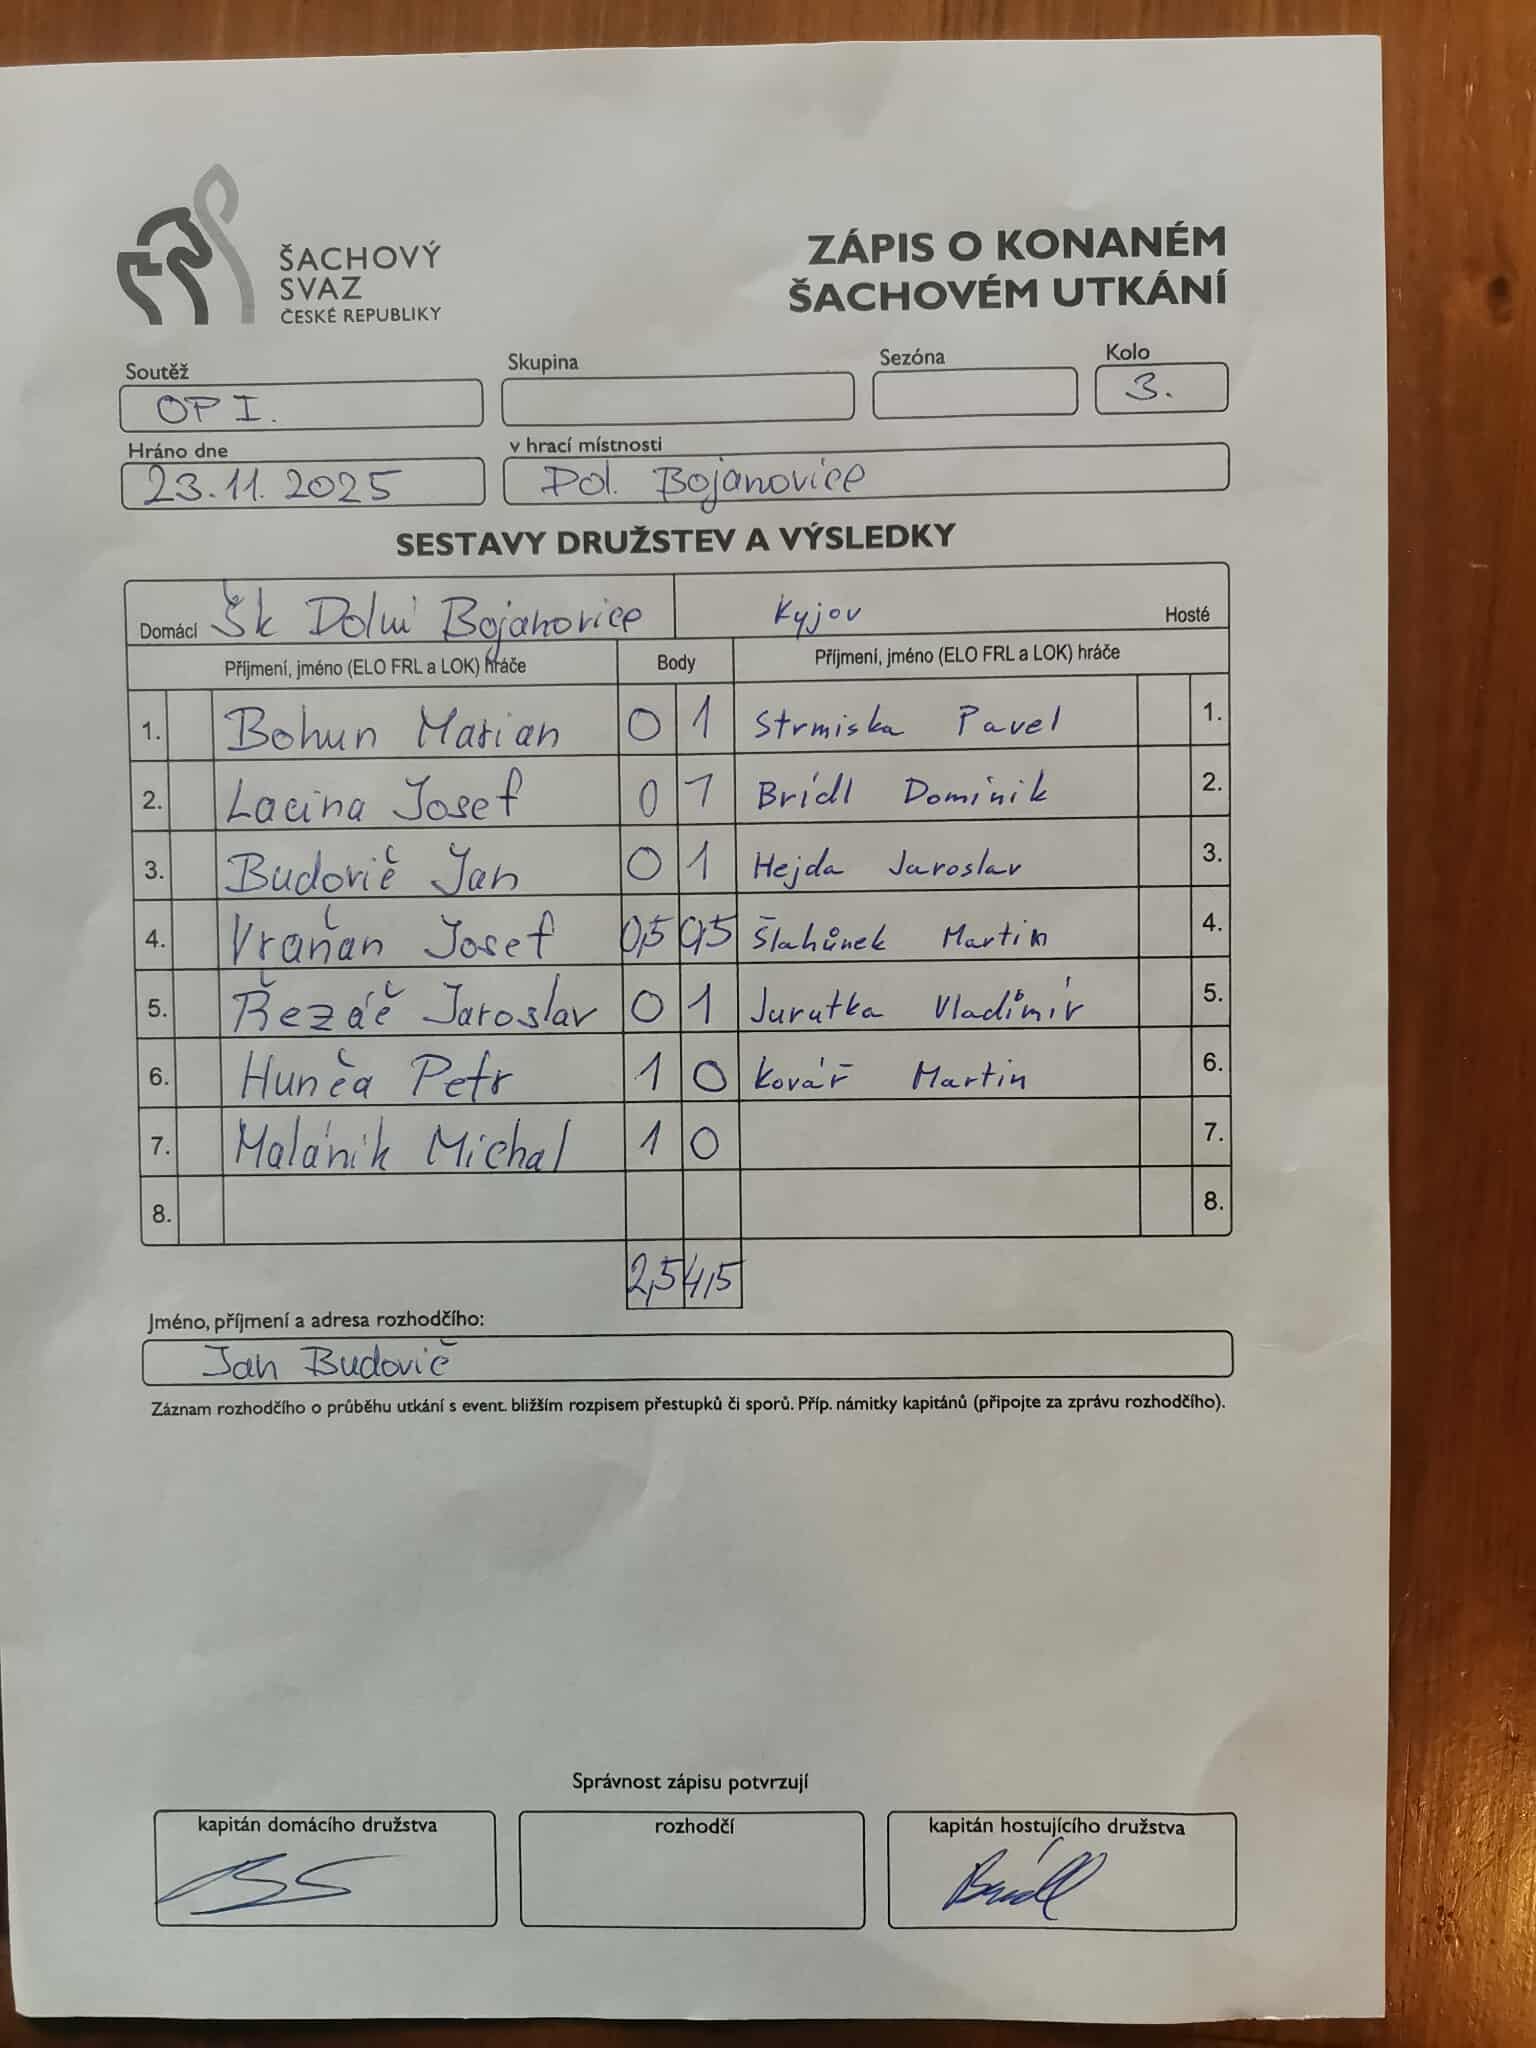 ŠACHOVÝ
SVAZ
ČESKÉ REPUBLIKY
ZÁPIS O KONANÉM
ŠACHOVÉM UTKÁNÍ
Soutěž Skupina Sezóna Kolo
OP I. 3.
Hráno dne v hrací místnosti
23.11.2025 Dol. Bojanovice
SESTAVY DRUŽSTEV A VÝSLEDKY
Domácí Šk Dolní Bojanovice Kyjov Hosté
Příjmení, jméno (ELO FRL a LOK) hráče Body Příjmení, jméno (ELO FRL a LOK) hráče
1. Bohun Marian 0 1 Strmiska Pavel 1.
2. Lacina Josef 0 1 Brídl Dominik 2.
3. Budovič Jan 0 1 Hejda Jaroslav 3.
4. Vraňan Josef 0,5 0,5 Šlahůnek Martin 4.
5. Řezáč Jaroslav 0 1 Jurutka Vladimír 5.
6. Hunča Petr 1 0 Kovář Martin 6.
7. Malánik Michal 1 0 7.
8. 8.
2,5 4,5
Jméno, příjmení a adresa rozhodčího:
Jan Budovič
Záznam rozhodčího o průběhu utkání s event. bližším rozpisem přestupků či sporů. Příp. námitky kapitánů (připojte za zprávu rozhodčího).
Správnost zápisu potvrzují
kapitán domácího družstva rozhodčí kapitán hostujícího družstva
Brídl